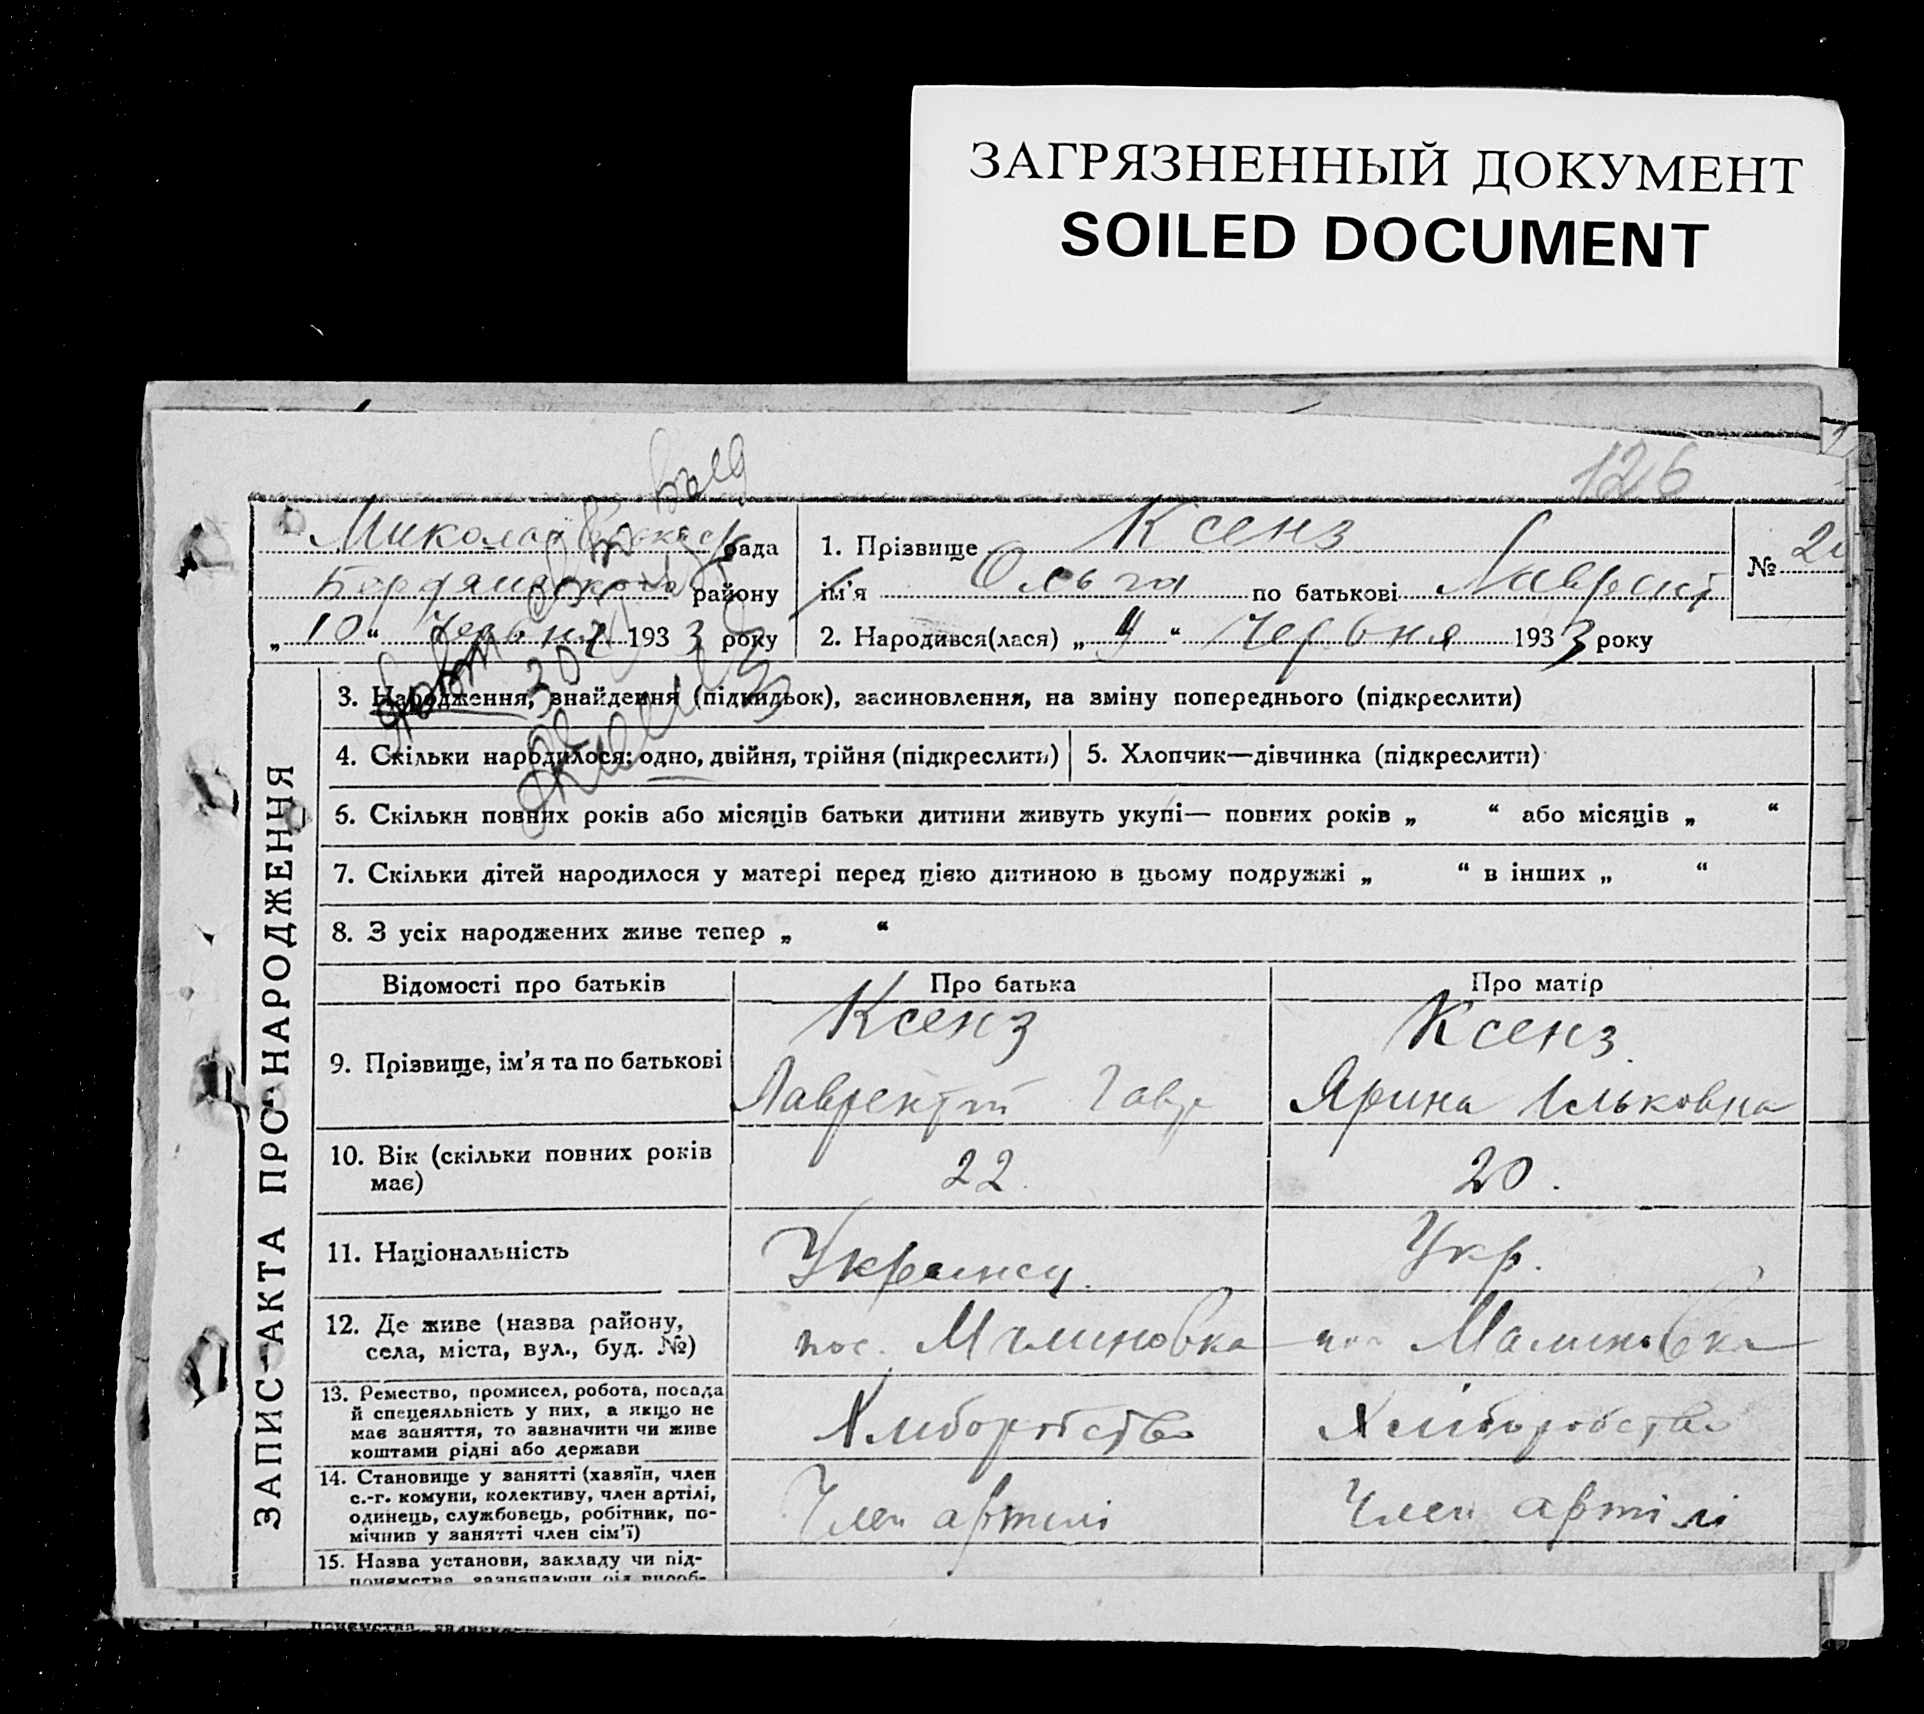 ЗАГРЯЗНЕННЫЙ ДОКУМЕНТ
SOILED DOCUMENT
126
ЗАПИС АКТА ПРО НАРОДЖЕННЯ
рада
Бердянського району
„ 10 “ Червня 1933 року
1. Прізвище Ксенз
ім'я Ольга по батькові Лаврент
№
2. Народився(лася) „ “ Червня 1933 року
3. Народження, знайдення (підкидьок), засиновлення, на зміну попереднього (підкреслити)
4. Скільки народилося: одно, двійня, трійня (підкреслить)
5. Хлопчик—дівчинка (підкреслити)
6. Скільки повних років або місяців батьки дитини живуть укупі— повних років „ “ або місяців „ “
7. Скільки дітей народилося у матері перед цією дитиною в цьому подружжі „ “ в інших „ “
8. З усіх народжених живе тепер „ “
Відомості про батьків Про батька Про матір
9. Прізвище, ім'я та по батькові
Ксенз
Лаврентій Гавр
Ксенз
Ярина Ільковна
10. Вік (скільки повних років
має)
22.
20.
11. Національність
Українец.
Укр.
12. Де живе (назва району,
села, міста, вул., буд. №)
пос. Малиновка
пос Малиновка
13. Ремество, промисел, робота, посада
й спецеяльність у них, а якщо не
має заняття, то зазначити чи живе
коштами рідні або держави
Хліборобство
Хліборобство
14. Становище у занятті (хазяїн, член
с.-г. комуни, колективу, член артілі,
одинець, службовець, робітник, по-
мічник у занятті член сім'ї)
Член артілі
Член артілі
15. Назва установи, закладу чи під-